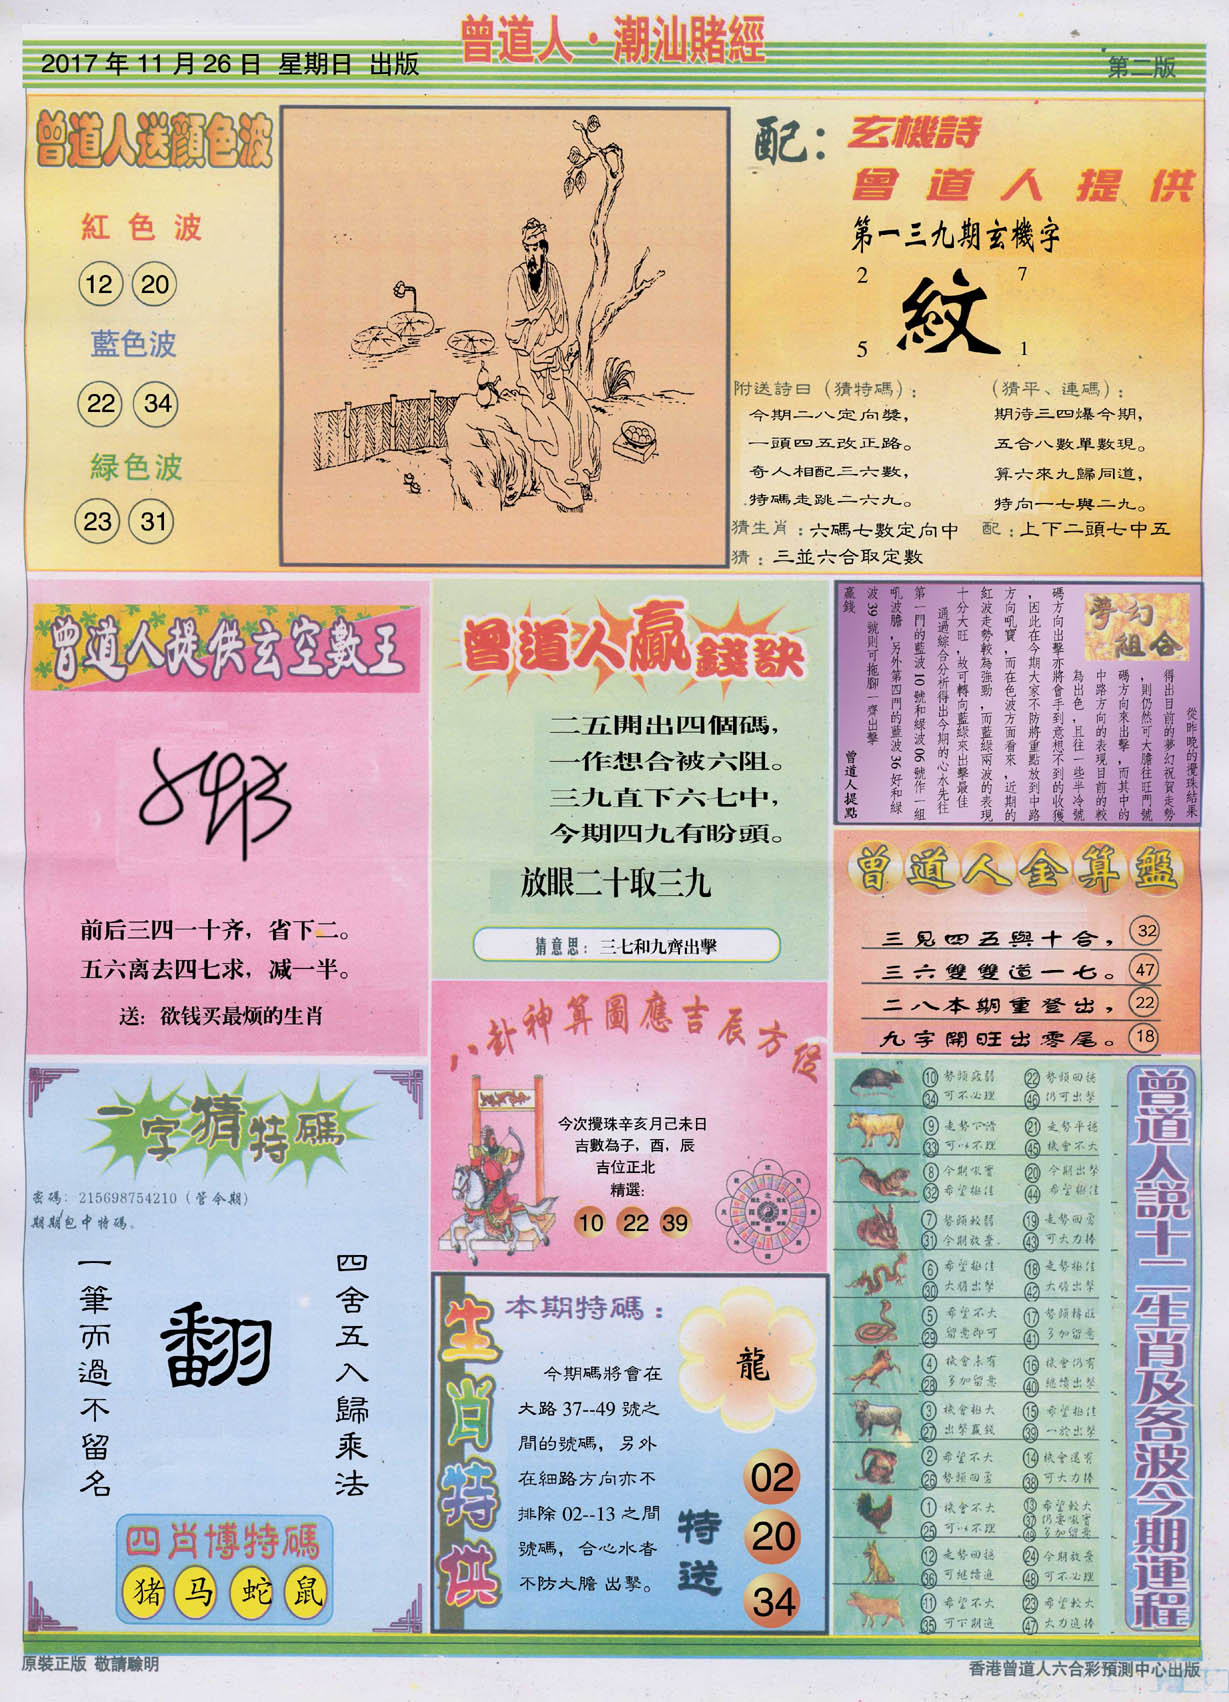 曾道人·潮汕賭經
2017年11月26日 星期日 出版
第二版
曾道人送顏色波
紅色波
12 20
藍色波
22 34
緑色波
23 31
配：玄機詩
曾道人提供
第一三九期玄機字
2 7
紋
5 1
附送詩曰（猜特碼）：
今期二八定向獎，
一頭四五改正路。
奇人相配三六數，
特碼走跳二六九。
（猜平、連碼）：
期待三四爆今期，
五合八數單數現。
算六來九歸同道，
特向一七與二九。
猜生肖：六碼七數定向中
配：上下二頭七中五
猜：三並六合取定數
曾道人提供玄空數王
前后三四一十齐，省下二。
五六离去四七求，减一半。
送：欲钱买最烦的生肖
曾道人贏錢訣
二五開出四個碼，
一作想合被六阻。
三九直下六七中，
今期四九有盼頭。
放眼二十取三九
猜意思：三七和九齊出擊
夢幻組合
從昨晚的攪珠結果
得出目前的夢幻祝賀走勢
，則仍然可大膽往旺門號
碼方向來出擊，而其中的
中路方向的表現目前的較
為出色，且往一些半冷號
碼方向出擊亦將會手到意想不到的收獲
，因此在今期大家不防將重點放到中路
方向吼寶，而在色波方面看來，近期的
紅波走勢較為強勁，而藍綠兩波的表現
十分大旺，故可轉向藍綠來出擊最佳
通過綜合分析得出今期的心水先往
第一門的藍波10號和綠波06號作一組
吼波膽，另外第四門的藍波36好和綠
波39號則可拖腳一齊出擊
贏錢
曾道人提點
曾道人金算盤
三見四五與十合，32
三六雙雙道一七。47
二八本期重登出，22
九字開旺出零尾。18
八卦神算圖應吉辰方位
今次攪珠辛亥月己未日
吉數為子，酉，辰
吉位正北
精選：
10 22 39
一字猜特碼
密碼：215698754210（管今期）
期期包中特碼。
四舍五入歸乘法
翻
一筆而過不留名
四肖博特碼
猪 马 蛇 鼠
生肖特供
本期特碼：
龍
今期碼將會在
大路37--49號之
間的號碼，另外
在細路方向亦不
排除02--13之間
號碼，合心水者
不防大膽出擊。
特送
02
20
34
曾道人説十二生肖及各波今期運程
10 34 勢頭疲弱 可不必理
22 46 勢頭回穩 仍可出擊
9 33 走勢下滑 可以不理
21 45 走勢平穩 機會不大
8 32 今期吼寶 希望極佳
20 44 今期出擊 希望極佳
7 31 勢頭較弱 今期放棄
19 43 走勢回勇 可大力捧
6 30 希望極佳 大膽出擊
18 42 走勢極佳 大膽出擊
5 29 希望不大 留意即可
17 41 勢頭轉旺 多加留意
4 28 機會未有 多加留意
16 40 機會仍有 繼續出擊
3 27 機會極大 出擊贏錢
15 39 希望極佳 一於出擊
2 26 希望不大 勢頭回勇
14 38 機會還有 可大力捧
1 25 機會不大 可以不理
13 37 49 希望較大 仍要吼寶 多加留意
12 36 走勢回穩 可繼續追
24 48 今期放棄 可不必理
11 35 希望不大 可下期追
23 47 希望較大 大力追捧
原裝正版 敬請驗明
香港曾道人六合彩預測中心出版